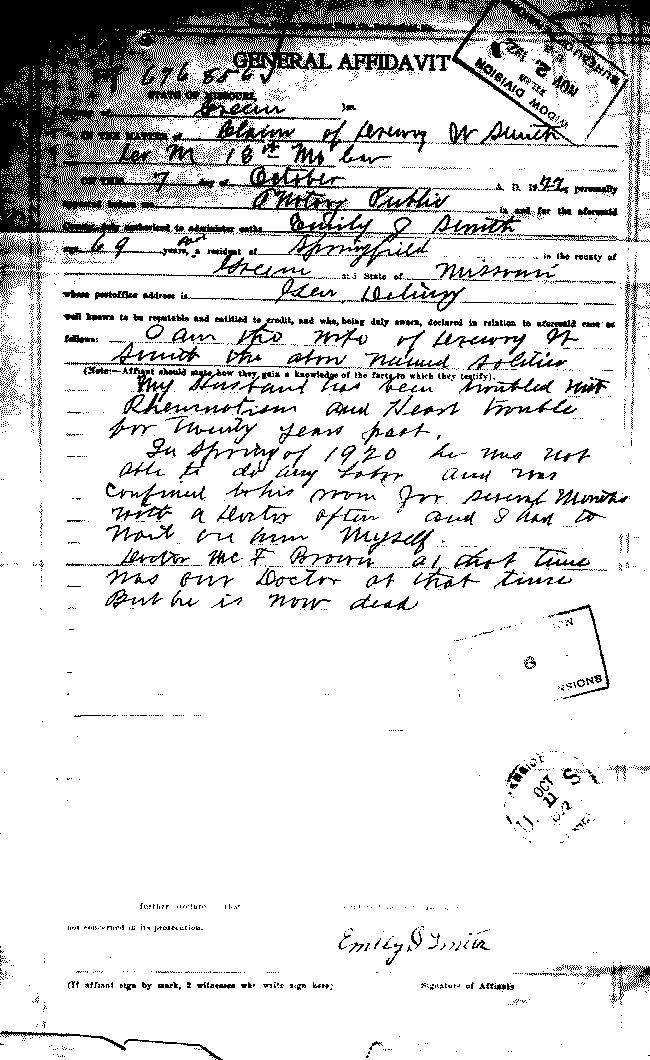 GENERAL AFFIDAVIT
STATE OF MISSOURI,
Green } ss.
IN THE MATTER of Claim of W Smith
Co M 18th Mo Cav
ON THIS 7 day of October A. D. 1922, personally
appeared before me, a Notary Public in and for the aforesaid
County, duly authorized to administer oaths Emily J Smith
age 69 years, a resident of Springfield in the county of
Green and State of Missouri
whose postoffice address is Gen Delivry
well known to be reputable and entitled to credit, and who, being duly sworn, declared in relation to aforesaid case as
follows: I am the wife of W
Smith the above named soldier
(Note—Affiant should state how they gain a knowledge of the facts to which they testify).
My Husband has been troubled with
Rheumatism and Heart trouble
for twenty years past.
In Spring of 1920 he was not
able to do any Labor and was
Confined to his room for several Months
with a Doctor often and I had to
wait on him Myself.
Doctor Brown at that time
was our Doctor at that time
But he is now dead
OCT
11
1922
U. S.
further declare that
not concerned in its prosecution.
Emily J Smith
(If affiant sign by mark, 2 witnesses who write sign here)
Signature of Affiants